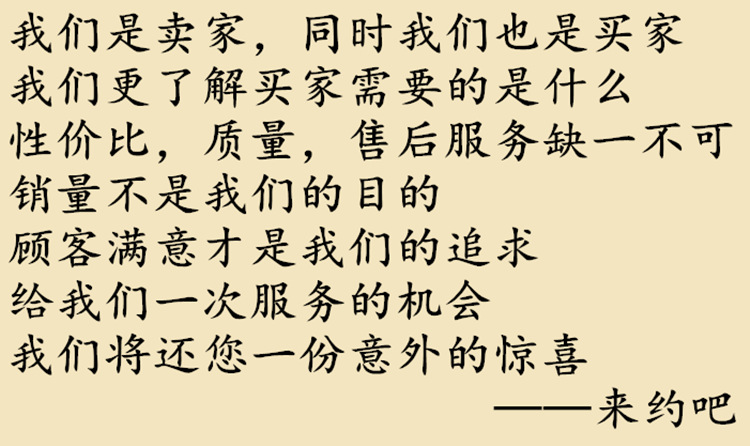 我们是卖家，同时我们也是买家
我们更了解买家需要的是什么
性价比，质量，售后服务缺一不可
销量不是我们的目的
顾客满意才是我们的追求
给我们一次服务的机会
我们将还您一份意外的惊喜
——来约吧